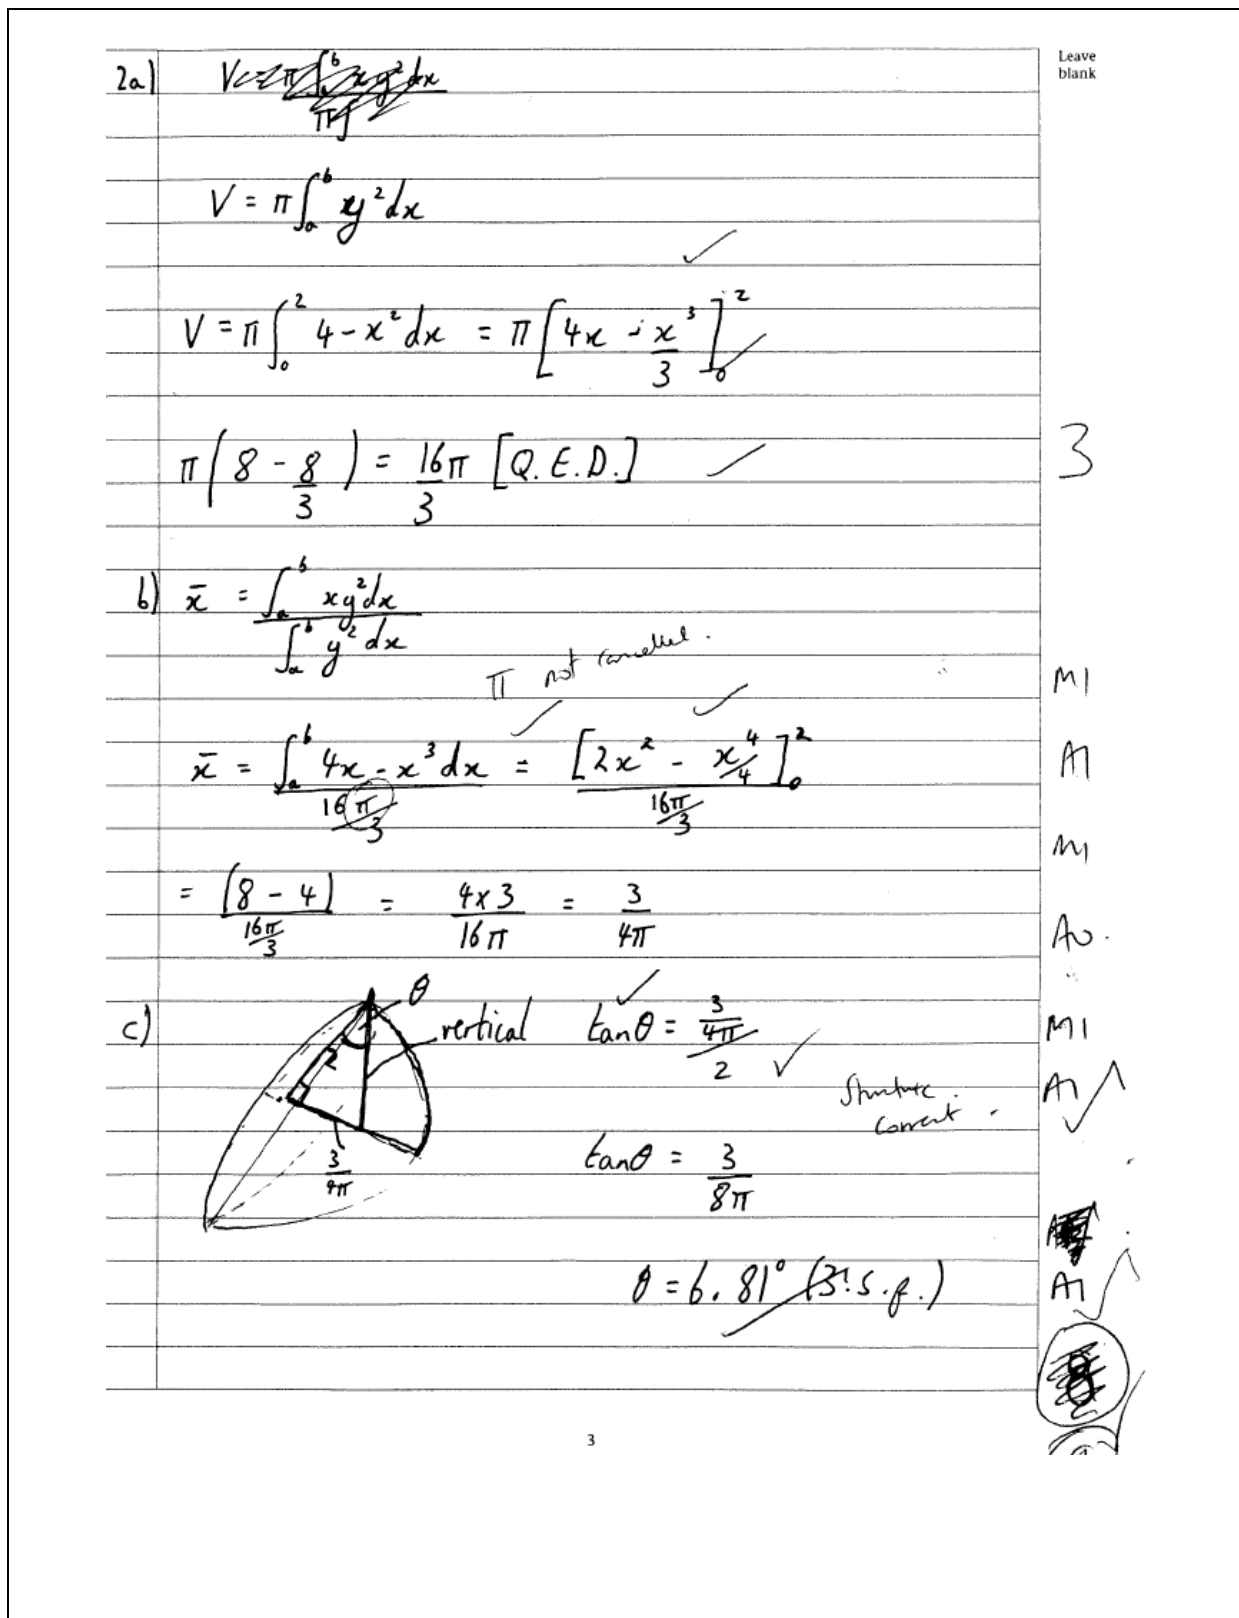 Leave
blank
2a)
V = π∫_a^b y² dx
V = π∫_0^2 4 - x² dx = π[4x - x³/3]_0^2
π(8 - 8/3) = 16/3 π [Q.E.D.]
3
b) x̄ = ∫_a^b xy² dx / ∫_a^b y² dx
π not cancelled.
M1
x̄ = ∫_a^b 4x - x³ dx / (16π/3) = [2x² - x⁴/4]_0^2 / (16π/3)
A1
M1
= (8 - 4) / (16π/3) = 4x3 / 16π = 3/4π
A0.
c) θ
vertical
2
3/4π
tanθ = (3/4π) / 2
M1
Structure.
Correct.
A1
tanθ = 3/8π
θ = 6.81° (3.s.f.)
A1
8
3